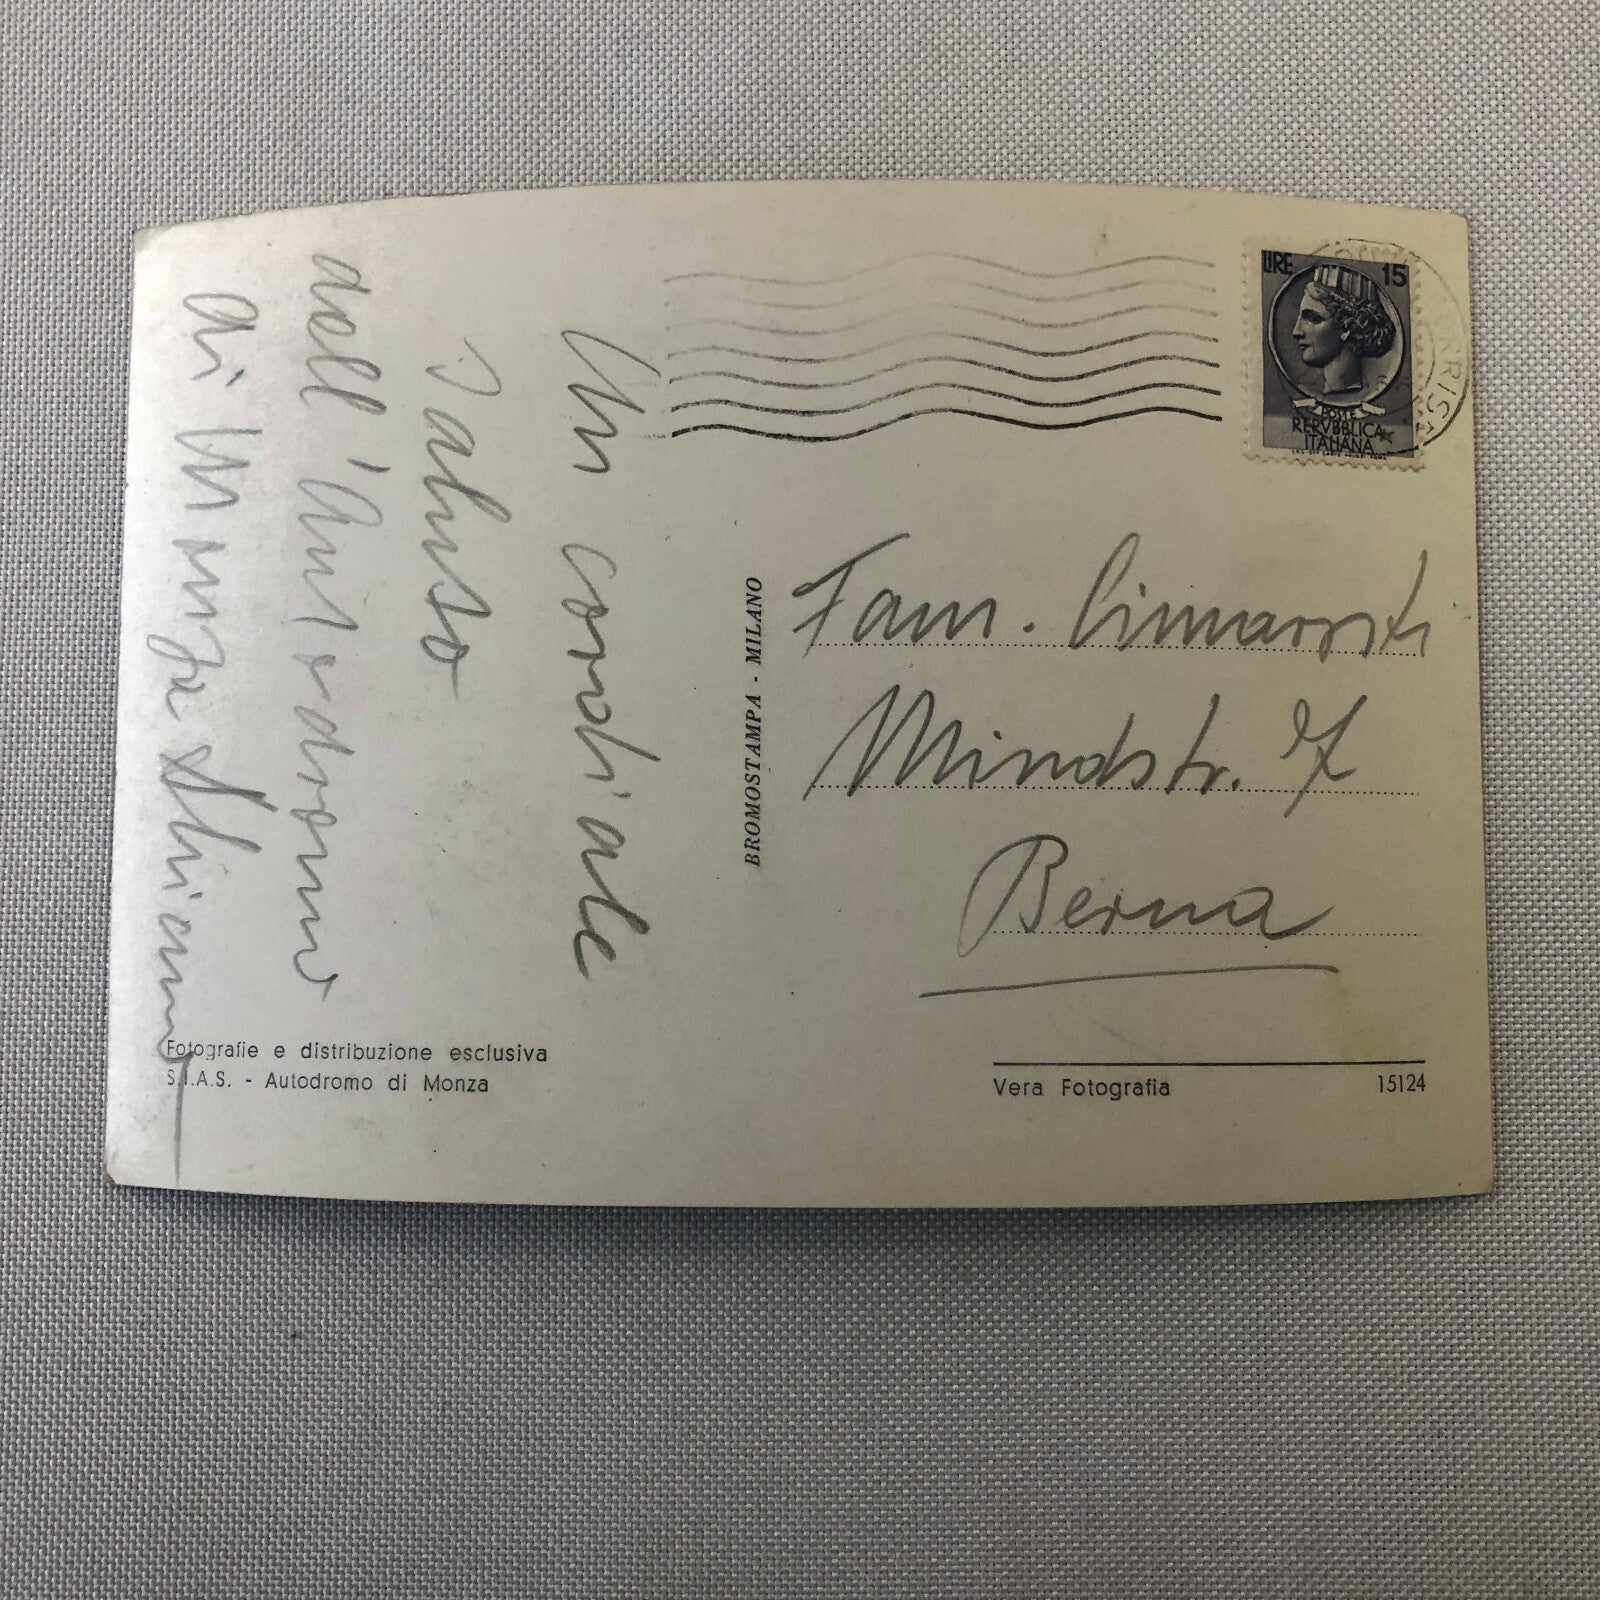 Un cordiale
saluto
dell'Autodromo
di Monza
LIRE 15
POSTE
REPVBBLICA
ITALIANA
Fam.
Mindstr. 7
Berna
BROMOSTAMPA - MILANO
Fotografie e distribuzione esclusiva
S.I.A.S. - Autodromo di Monza
Vera Fotografia 15124